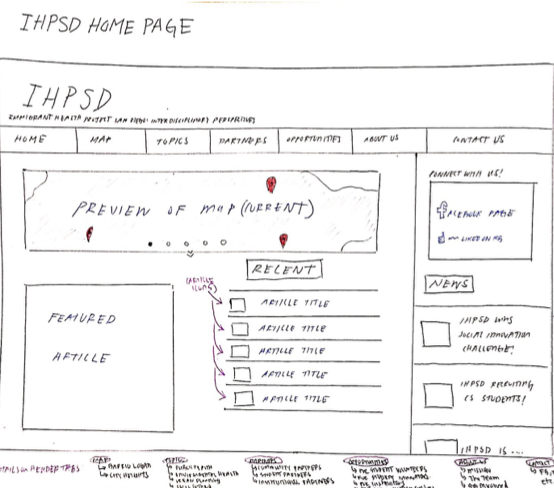 IHPSD HOME PAGE
IHPSD
IMMIGRANT HEALTH PROJECT SAN DIEGO: INTERDISCIPLINARY PERSPECTIVES
HOME MAP TOPICS PARTNERS OPPORTUNITIES ABOUT US CONTACT US
PREVIEW OF MAP (CURRENT)
CONNECT WITH US!
FACEBOOK PAGE
LIKED ON FB
RECENT
(ARTICLE
ICONS)
ARTICLE TITLE
ARTICLE TITLE
ARTICLE TITLE
ARTICLE TITLE
ARTICLE TITLE
FEATURED
ARTICLE
NEWS
IHPSD WINS
SOCIAL INNOVATION
CHALLENGE!
IHPSD RECRUITING
CS STUDENTS!
IHPSD IS ...
MAP
TOPICS
PARTNERS
OPPORTUNITIES
ABOUT US
CONTACT
PUBLIC HEALTH
ENVIRONMENTAL HEALTH
URBAN PLANNING
COMMUNITY PARTNERS
STUDENT PARTNERS
INSTITUTIONAL PARTNERS
MISSION
THE TEAM
GET INVOLVED